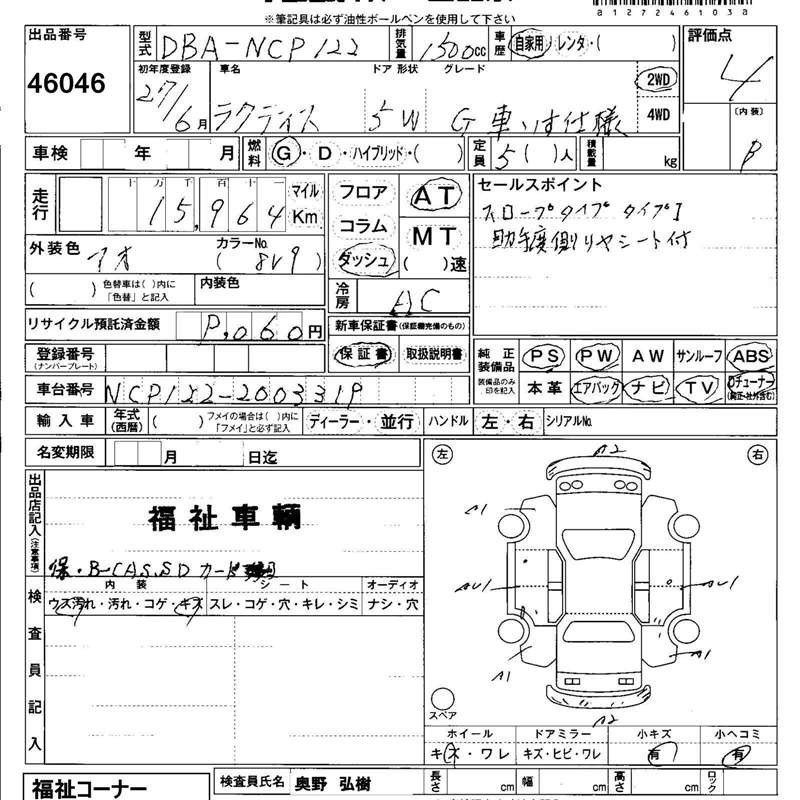 ※筆記具は必ず油性ボールペンを使用して下さい
a127246103a
出品番号 46046
型式 DBA-NCP122 排気量 1500cc 車歴 自家用 レンタ・( ) 評価点 4
初年度登録 車名 ドア 形状 グレード 2WD 〔内装〕
27/6月 ラクティス 5W G 車いす仕様 4WD B
車検 年 月 燃料 G・D・ハイブリッド・( ) 定員 5( )人 積載量 kg
走行 十 万 千 百 十 一 15,964 マイル Km
フロア コラム ダッシュ AT MT ( )速
セールスポイント
スロープタイプ タイプI
助手席側リヤシート付
外装色 アオ カラーNo. ( 8V9 )
( ) 色替車は( )内に「色替」と記入 内装色
冷房 AC
リサイクル預託済金額 P.060円
新車保証書(保証書完備のもの)
登録番号(ナンバープレート) 保証書 取扱説明書
純正装備品 PS PW AW サンルーフ ABS
装備品のみ印を記入 本革 エアバッグ ナビ TV Dチューナー(純正・社外含む)
車台番号 NCP122-2003319
輸入車 年式(西暦) ( ) フメイの場合は( )内に「フメイ」と必ず記入 ディーラー・並行 ハンドル 左・右 シリアルNo.
名変期限 月 日迄
左 右
出品店記入(注意事項)
福祉車輌
保・B-CAS、SDカード
検査員記入
内装 シート オーディオ
ウス汚れ・汚れ・コゲ・キズ スレ・コゲ・穴・キレ・シミ ナシ・穴
A2
A1 A1
AU1 AU1
A1 A1
スペア A2
ホイール ドアミラー 小キズ 小ヘコミ
キズ・ワレ キズ・ヒビ・ワレ 有 有
福祉コーナー 検査員氏名 奥野 弘樹 長さ cm 幅 cm 高さ cm ロック